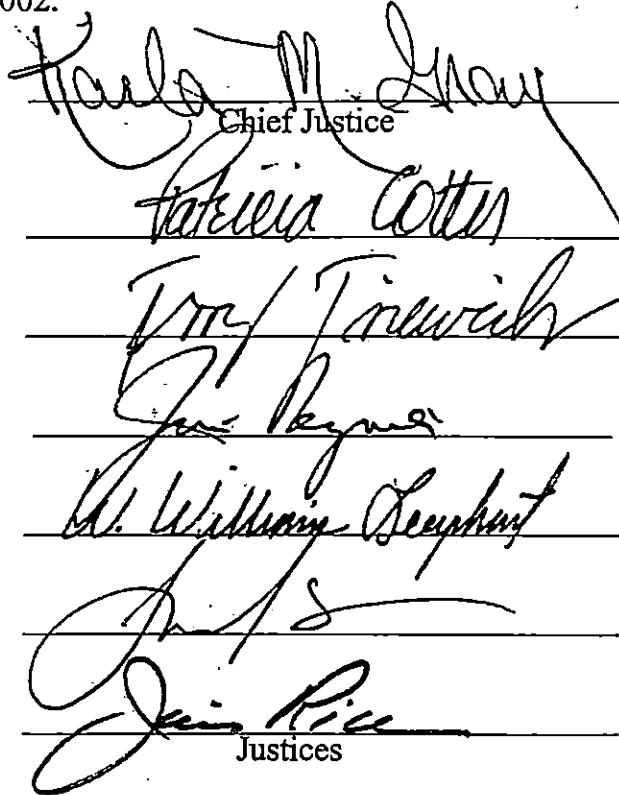 002.
Karla M. Gray
Chief Justice
Patricia Cotter
Terry Trieweiler
Jim Regnier
W. William Leaphart
Jim Rice
Justices